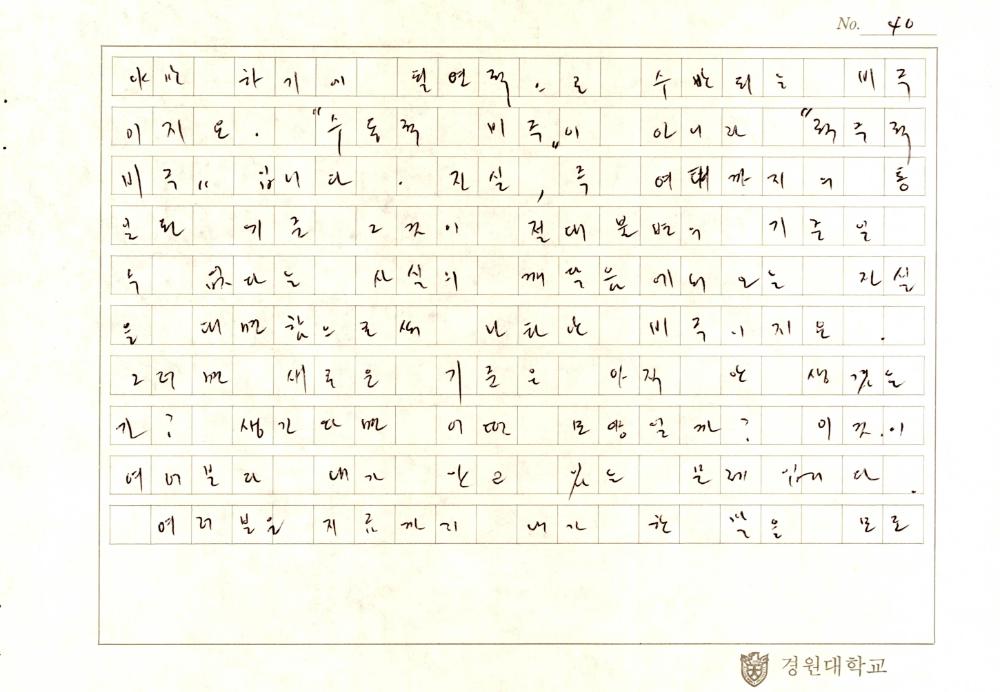 No. 40
하기에 필연적으로 수반되는 비극
이지요. "수동적 비극"이 아니라 "적극적
비극" 입니다. 진실, 즉 여태까지의 통
일된 기준 그것이 절대불변의 기준일
수 없다는 사실의 깨달음에서 오는 진실
을 대면함으로써 나타난 비극이지요.
그러면 새로운 기준은 아직 안 생겼는
가? 생긴다면 어떤 모양일까? 이것이
여러분과 내가 안고 있는 문제입니다.
여러분은 지금까지 내가 한 말을 모로
경원대학교